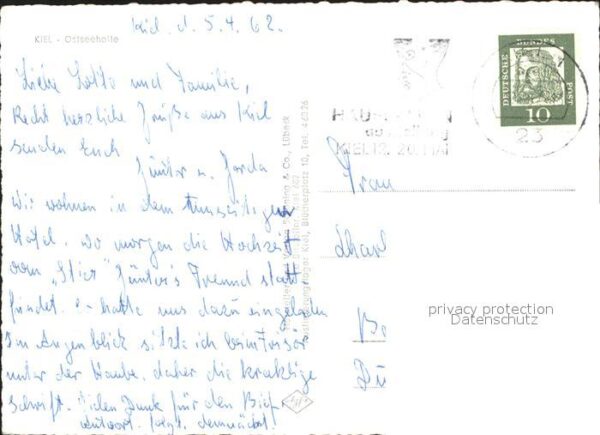 Kiel d. 5.4.62.
KIEL - Ostseehalle
Liebe Lotto und Familie,
Recht herzliche Grüße aus Kiel
senden Euch
Günter u. Gerda
Wir wohnen in dem umseitigen
Hotel. wo morgen die Hochzeit
vom "Stier" Günter's Freund statt
findet. Er hatte uns dazu eingeladen
Im Augenblick sitze ich beim Frisör
unter der Haube. daher die kraklige
Schrift. Vielen Dank für den Brief
Antwort folgt demnächst!
& Co., Lübeck
Kiel, Blücherplatz 10, Tel. 46026
DEUTSCHE BUNDESPOST
10
23
KIEL 12. 20. MAI
Frau
Charl
Du
privacy protection
Datenschutz